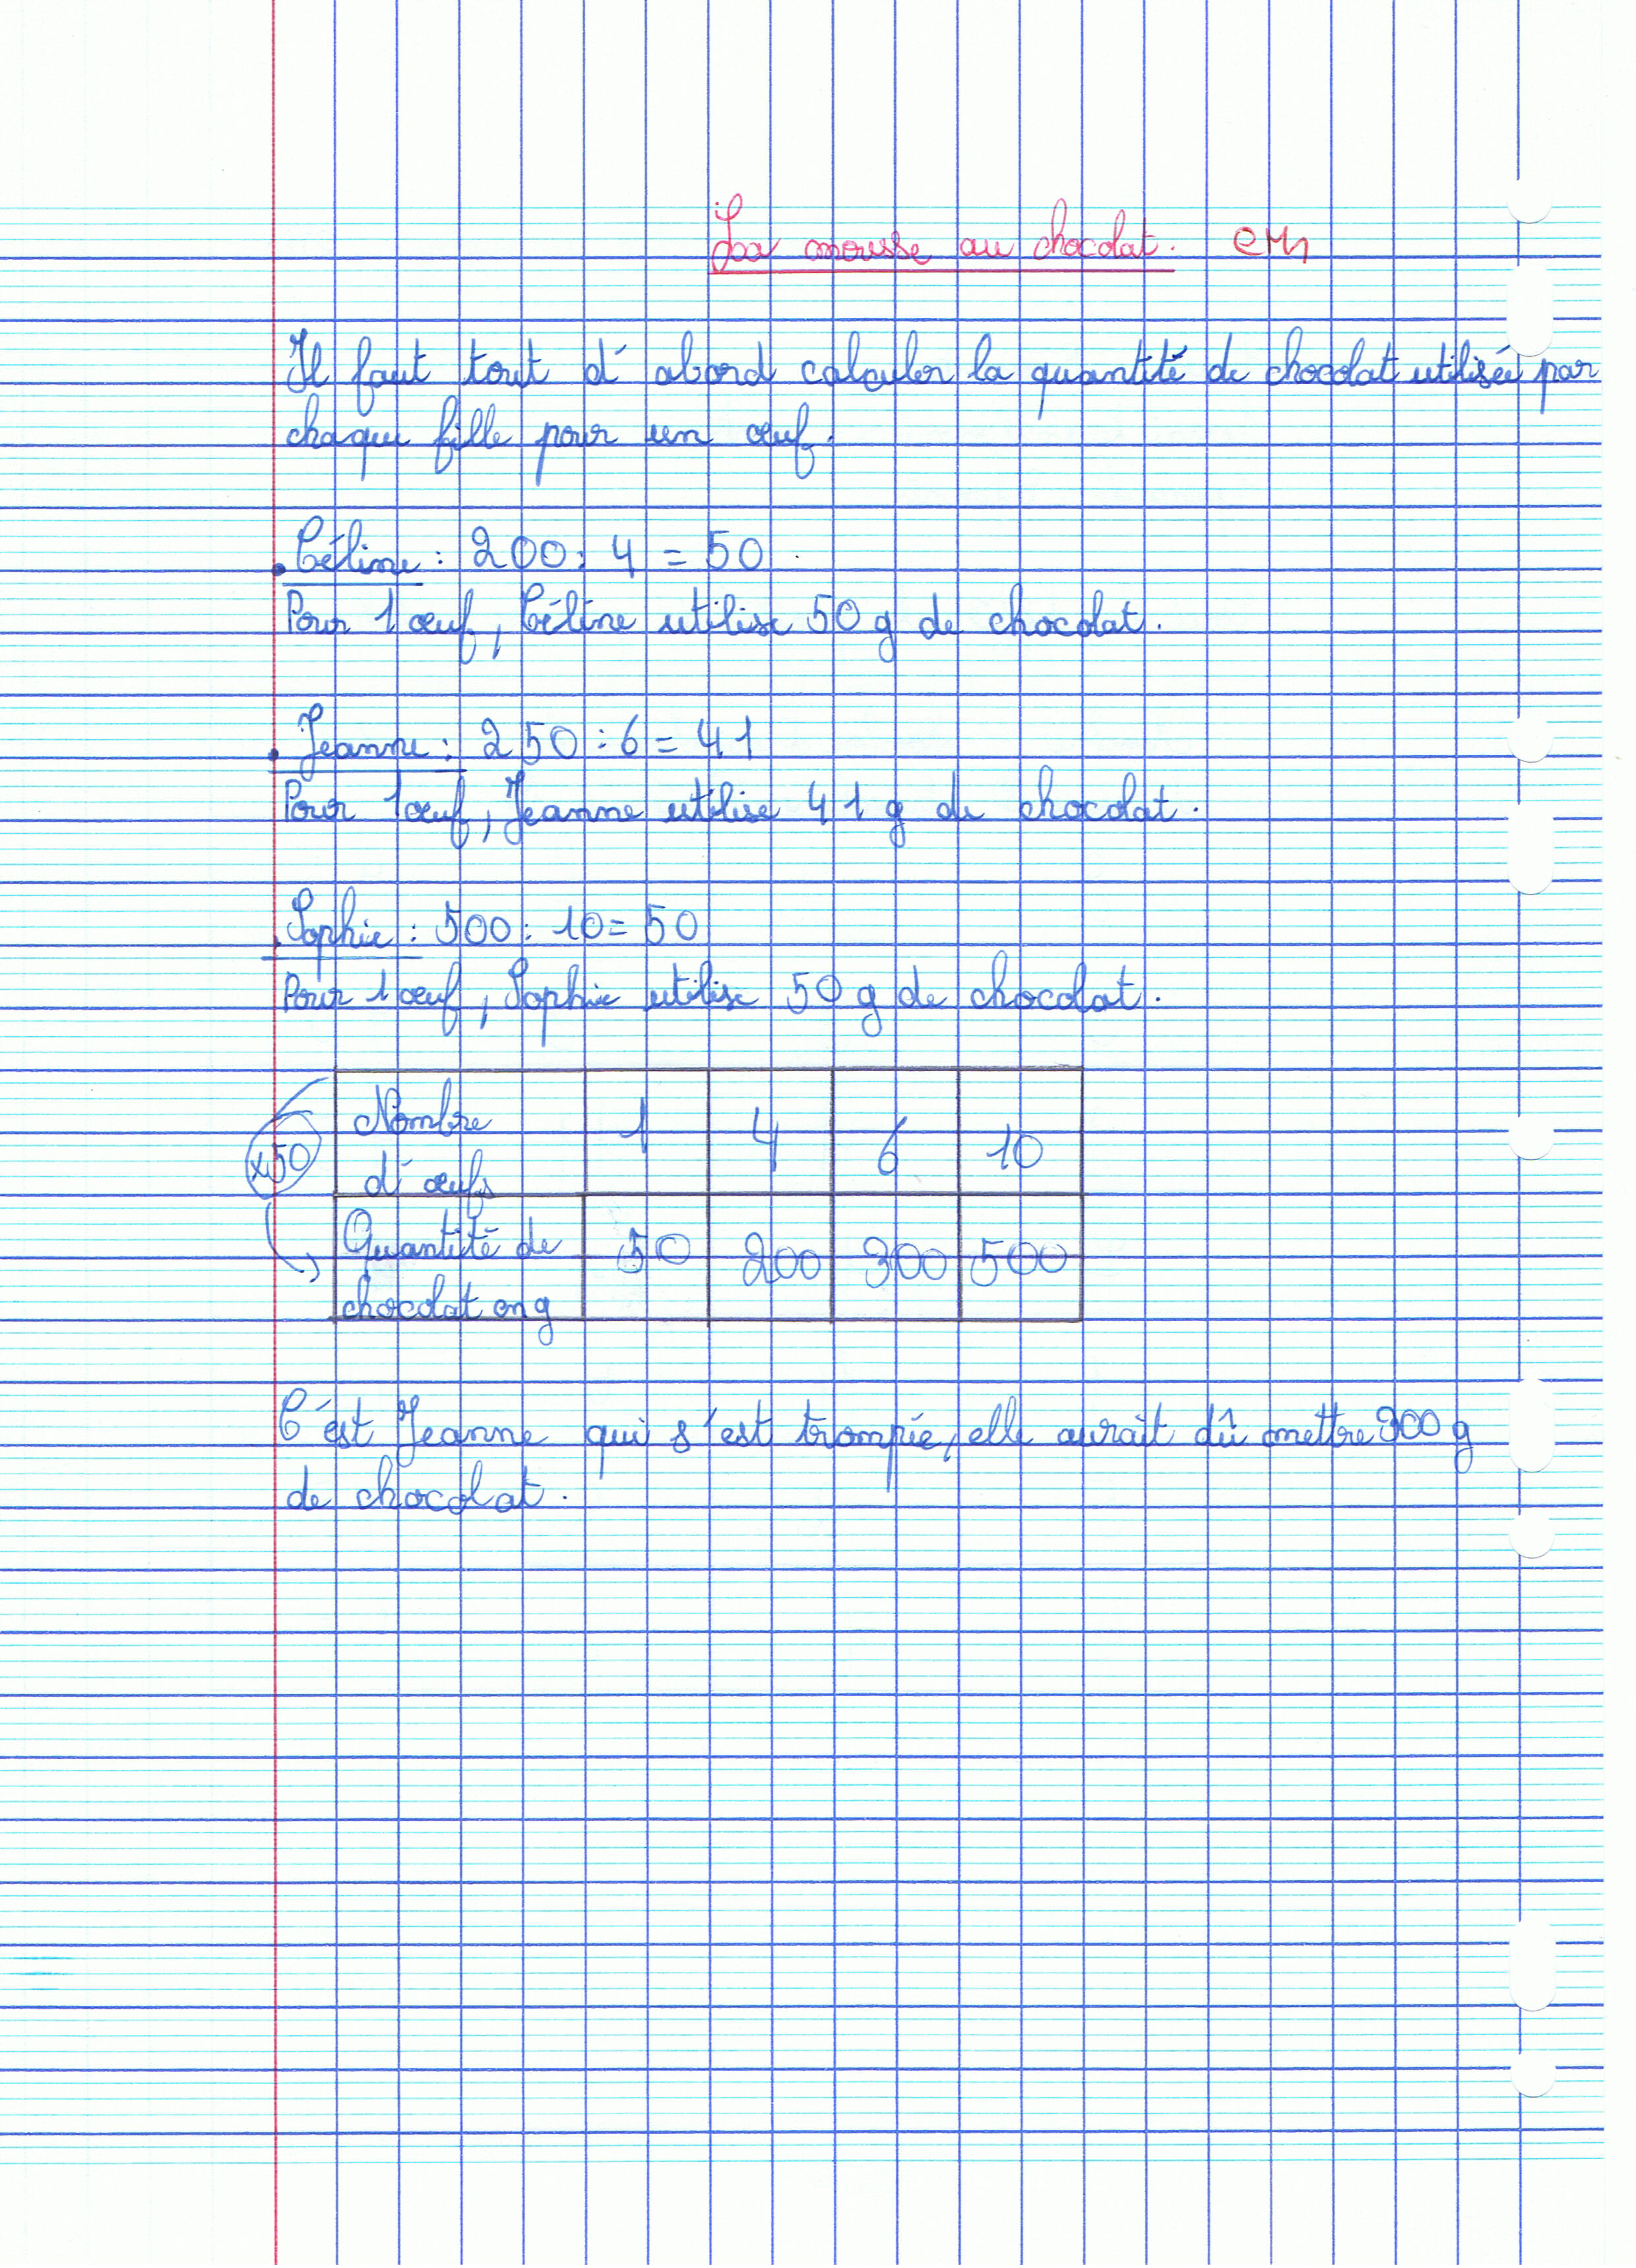 La mousse au chocolat. CM1
Il faut tout d'abord calculer la quantité de chocolat utilisée par
chaque fille pour un œuf.
. Céline : 200 : 4 = 50
Pour 1 œuf, Céline utilise 50 g de chocolat.
. Jeanne : 250 : 6 = 41
Pour 1 œuf, Jeanne utilise 41 g de chocolat.
. Sophie : 500 : 10 = 50
Pour 1 œuf, Sophie utilise 50 g de chocolat.
Nombre
d'œufs 1 4 6 10
x50
Quantité de
chocolat en g 50 200 300 500
C'est Jeanne qui s'est trompée, elle aurait dû mettre 300 g
de chocolat.